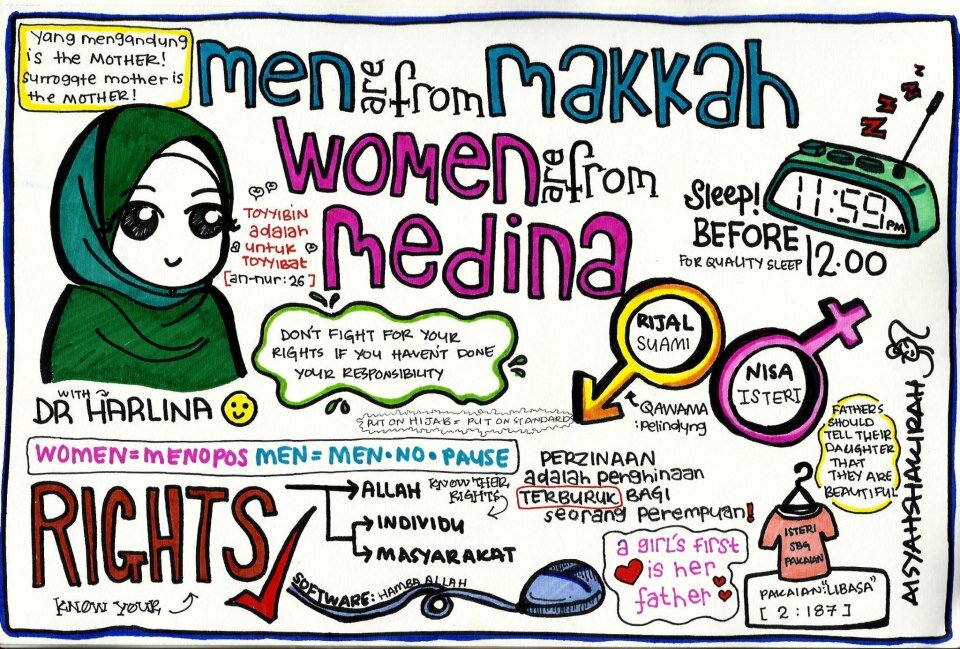 Yang mengandung
is the MOTHER!
Surrogate mother is
the MOTHER!
men are from makkah
women are from
medina
TOYYIBIN
adalah
untuk
TOYYIBAT
[an-nur:26]
Sleep!
BEFORE
12.00
FOR QUALITY SLEEP
11:59 PM
N N N N
DON'T FIGHT FOR YOUR
RIGHTS IF YOU HAVEN'T DONE
YOUR RESPONSIBILITY
RIJAL
SUAMI
NISA
ISTERI
QAWAMA
:Pelindung
WITH
DR HARLINA
PUT ON HIJAB = PUT ON STANDARD
WOMEN=MENOPOS MEN=MEN·NO·PAUSE
RIGHTS
KNOW YOUR
ALLAH
KNOW THEIR
RIGHTS
INDIVIDU
MASYARAKAT
SOFTWARE: HAMBA ALLAH
PERZINAAN
adalah penghinaan
TERBURUK BAGI
seorang perempuan!
a girl's first
is her
father
FATHERS
SHOULD
TELL THEIR
DAUGHTER
THAT
THEY ARE
BEAUTIFUL
ISTERI
SBG
PAKAIAN
PAKAIAN:"LIBASA"
[2:187]
AISYAHSHAKIRAH